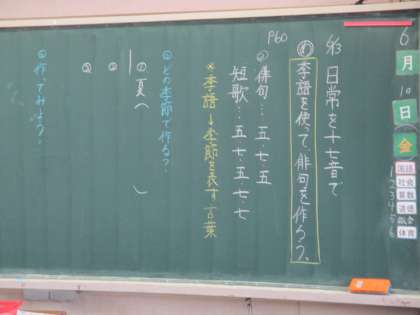 6月10日金
1 国語
2 社会
3 算数
4 道徳
5 総合
6 体育
5/13 日常を十七音で
P60
め 季語を使って、俳句を作ろう。
俳句…五・七・五
短歌…五・七・五・七・七
※季語→季節を表す言葉
どの季節で作ろう?
①夏( )
②
③
作ってみよう!